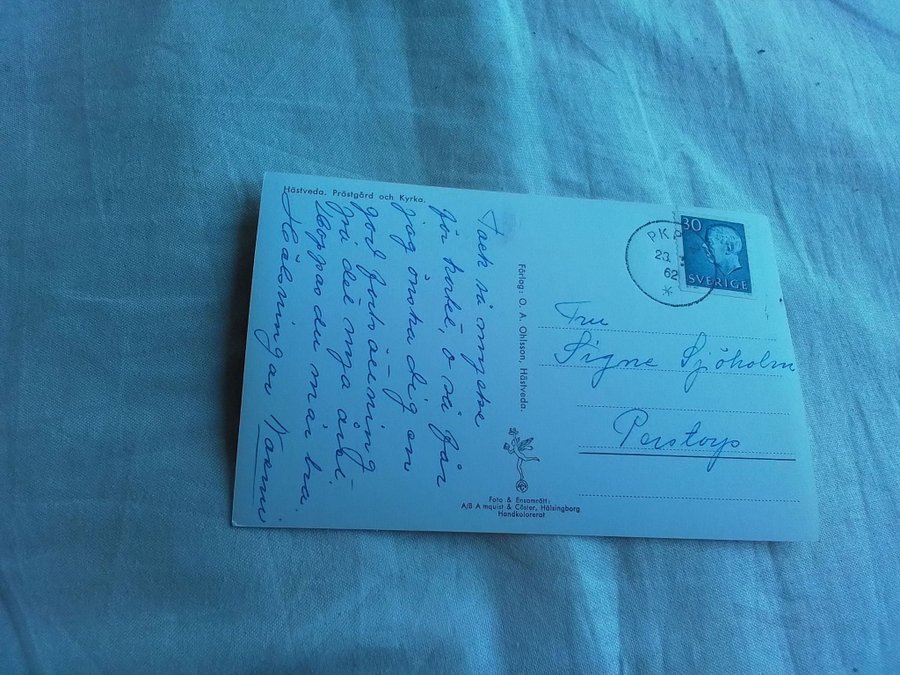 Hästveda. Prästgård och Kyrka.
Tack så mycke
för kortet, o så får
jag önska dig en
god fortsättning
på det nya året.
Hoppas du mår bra.
Hälsningar
Förlag: O. A. Ohlsson, Hästveda.
Foto & Ensamrätt:
A/B A mquist & Cöster, Hälsingborg
Handkolorerat
PKP
23.
62
30
SVERIGE
Fru
Signe Sjöholm
Perstorp